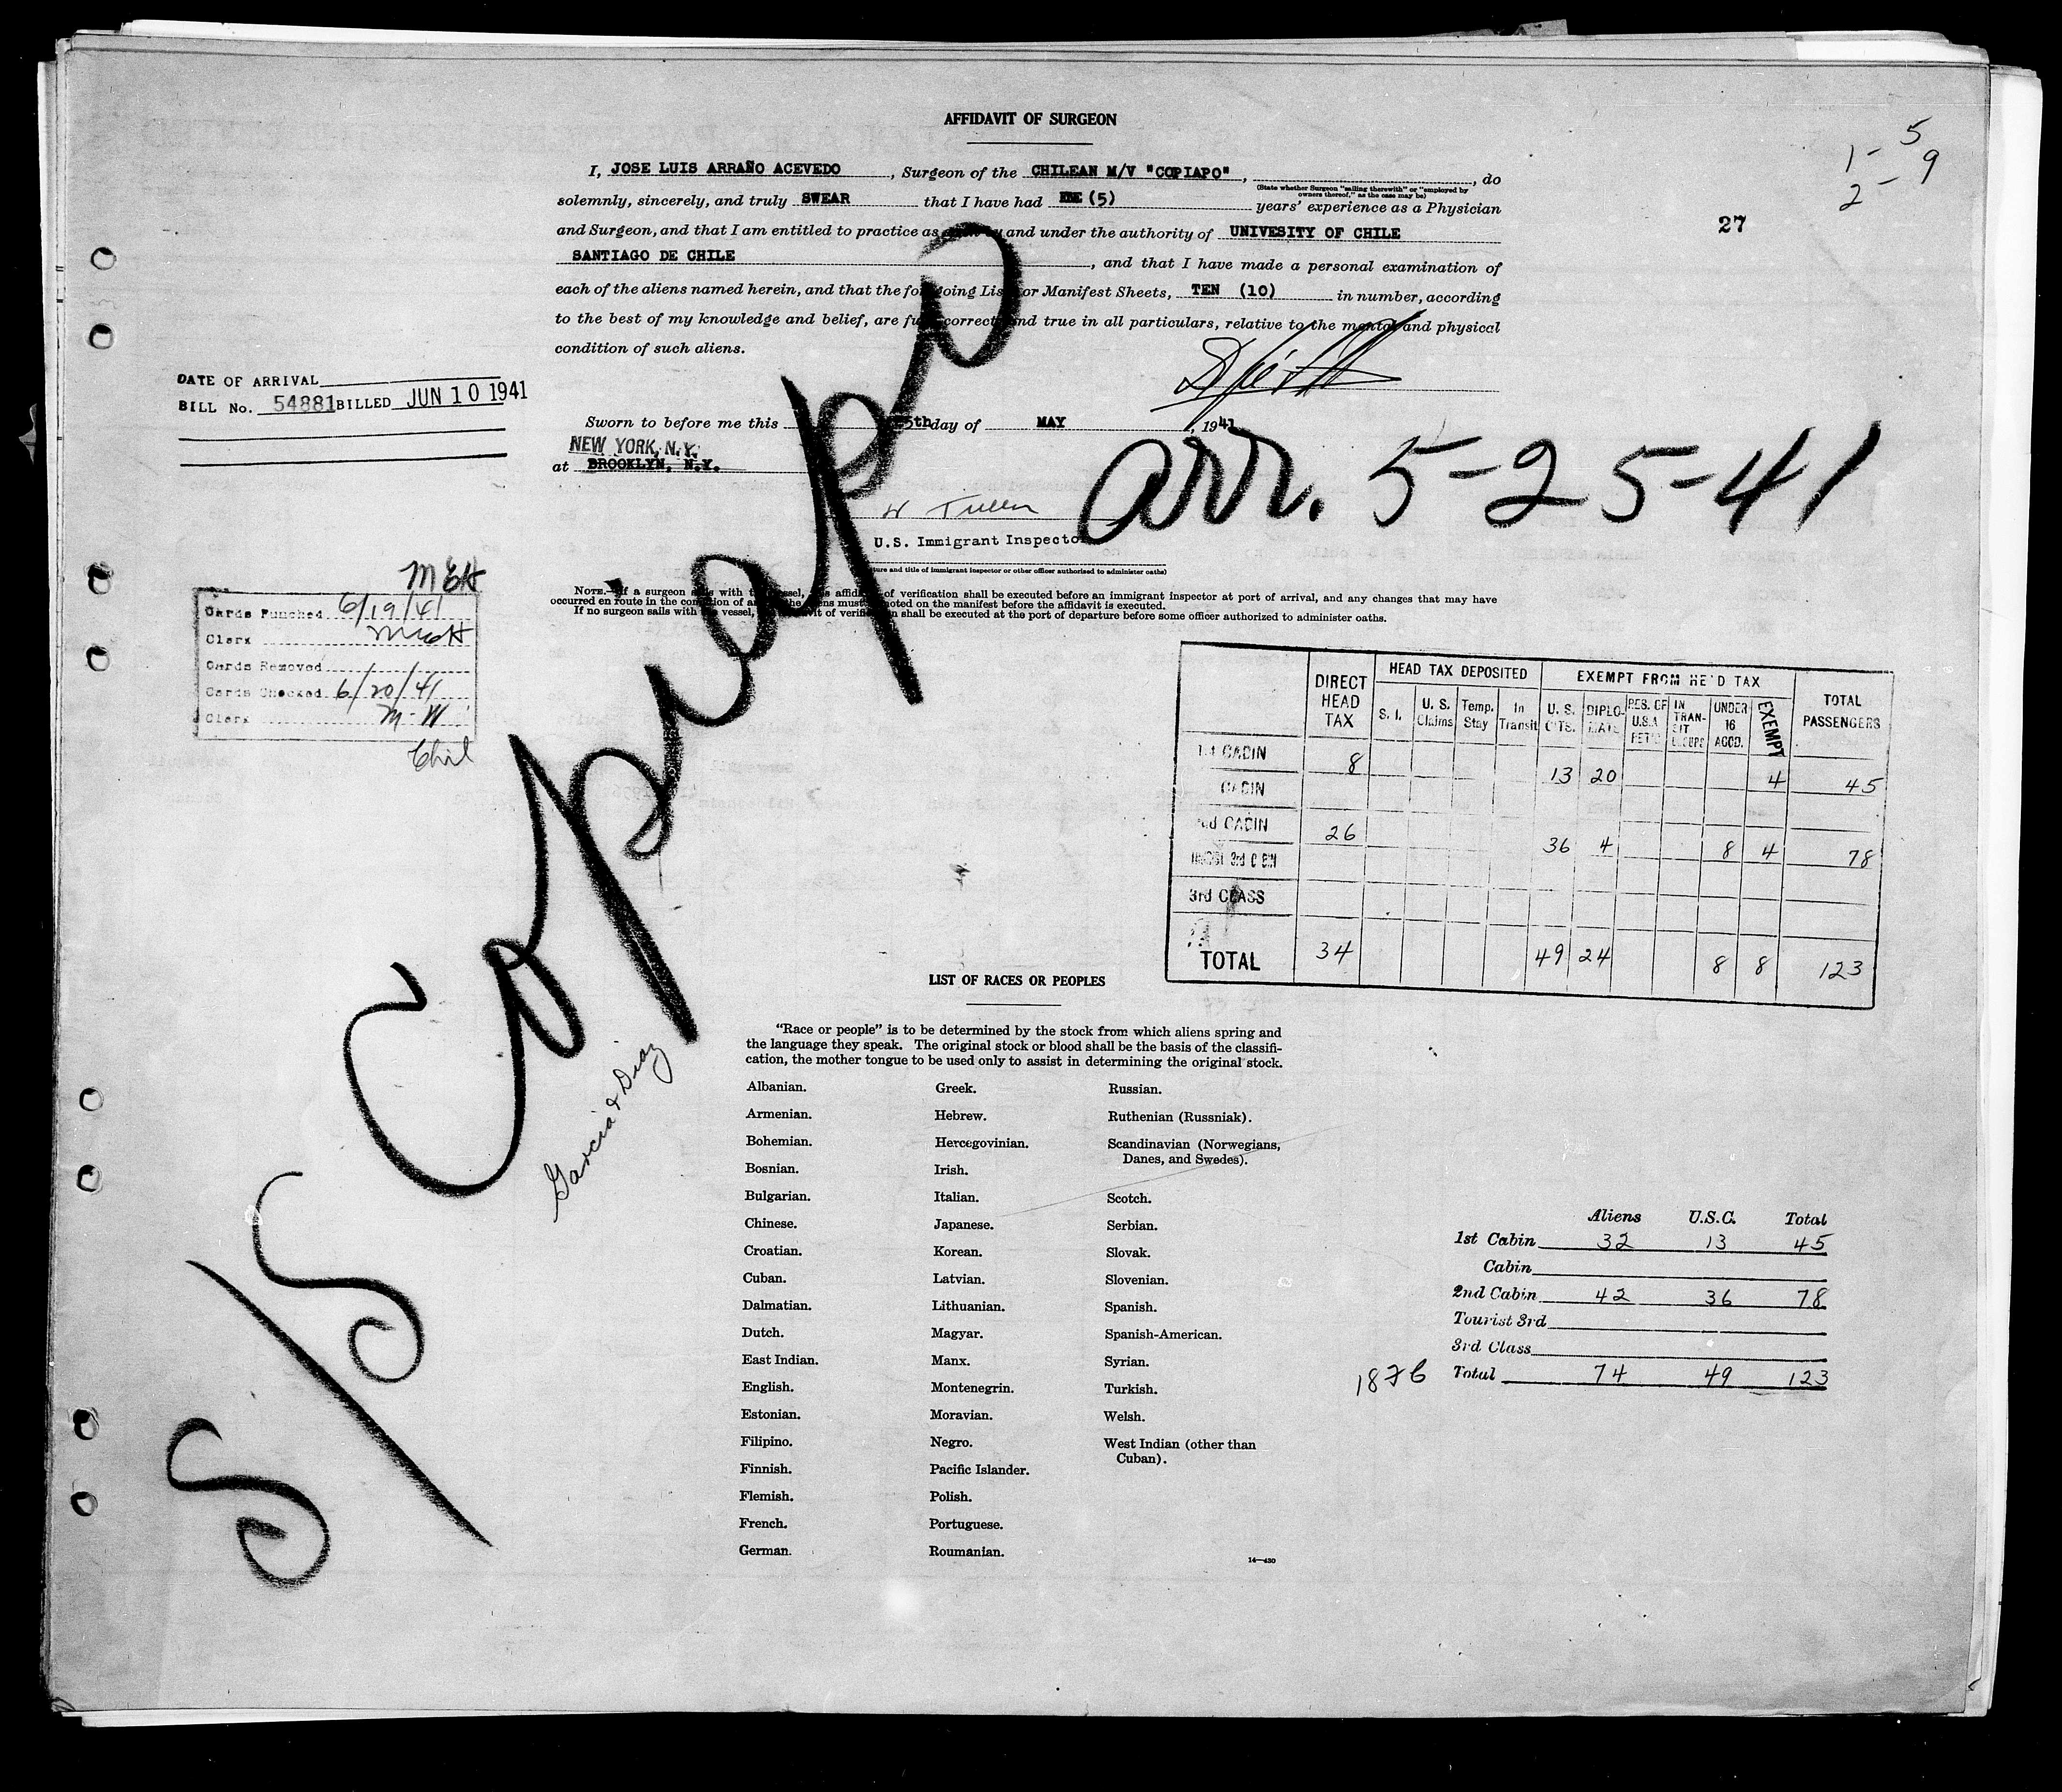 AFFIDAVIT OF SURGEON
5
1- 9
2-
27
I, JOSE LUIS ARRAÑO ACEVEDO, Surgeon of the CHILEAN M/V "COPIAPO", , do
(State whether Surgeon "sailing therewith" or "employed by
owners thereof," as the case may be)
solemnly, sincerely, and truly SWEAR that I have had (5) years' experience as a Physician
and Surgeon, and that I am entitled to practice as and under the authority of UNIVESITY OF CHILE
SANTIAGO DE CHILE, and that I have made a personal examination of
each of the aliens named herein, and that the foregoing List or Manifest Sheets, TEN (10) in number, according
to the best of my knowledge and belief, are full, correct, and true in all particulars, relative to the mental and physical
condition of such aliens.
DATE OF ARRIVAL
BILL No. 54881 BILLED JUN 10 1941
Sworn to before me this 25th day of MAY, 1941
NEW YORK, N.Y.
at BROOKLYN, N.Y.
arr. 5-25-41
U.S. Immigrant Inspector
(Signature and title of immigrant inspector or other officer authorized to administer oaths)
NOTE.—If a surgeon sails with the vessel, this affidavit of verification shall be executed before an immigrant inspector at port of arrival, and any changes that may have
occurred en route in the condition of any of the aliens must be noted on the manifest before the affidavit is executed.
If no surgeon sails with the vessel, the affidavit of verification shall be executed at the port of departure before some officer authorized to administer oaths.
MEH
Cards Punched 6/19/41
Clerk MEH
Cards Removed
Cards Checked 6/20/41
Clerk M-W
Chil
S/S Copiapo
Garcia & Diaz
DIRECT HEAD TAX HEAD TAX DEPOSITED EXEMPT FROM HEAD TAX TOTAL PASSENGERS
S. I. U. S. Claims Temp. Stay In Transit U. S. CITS. DIPLOMATS RES. OF U.S.A. RET'G IN TRANSIT GROUPS UNDER 16 ACCD. EXEMPT
1st CABIN 8 13 20 4 45
CABIN
2nd CABIN 26 36 4 8 4 78
TOURIST 3rd CABIN
3rd CLASS
TOTAL 34 49 24 8 8 123
LIST OF RACES OR PEOPLES
"Race or people" is to be determined by the stock from which aliens spring and
the language they speak. The original stock or blood shall be the basis of the classifi-
cation, the mother tongue to be used only to assist in determining the original stock.
Albanian.
Armenian.
Bohemian.
Bosnian.
Bulgarian.
Chinese.
Croatian.
Cuban.
Dalmatian.
Dutch.
East Indian.
English.
Estonian.
Filipino.
Finnish.
Flemish.
French.
German.
Greek.
Hebrew.
Hercegovinian.
Irish.
Italian.
Japanese.
Korean.
Latvian.
Lithuanian.
Magyar.
Manx.
Montenegrin.
Moravian.
Negro.
Pacific Islander.
Polish.
Portuguese.
Roumanian.
Russian.
Ruthenian (Russniak).
Scandinavian (Norwegians,
Danes, and Swedes).
Scotch.
Serbian.
Slovak.
Slovenian.
Spanish.
Spanish-American.
Syrian.
Turkish.
Welsh.
West Indian (other than
Cuban).
14—430
Aliens U.S.C. Total
1st Cabin 32 13 45
Cabin
2nd Cabin 42 36 78
Tourist 3rd
3rd Class
Total 74 49 123
1876